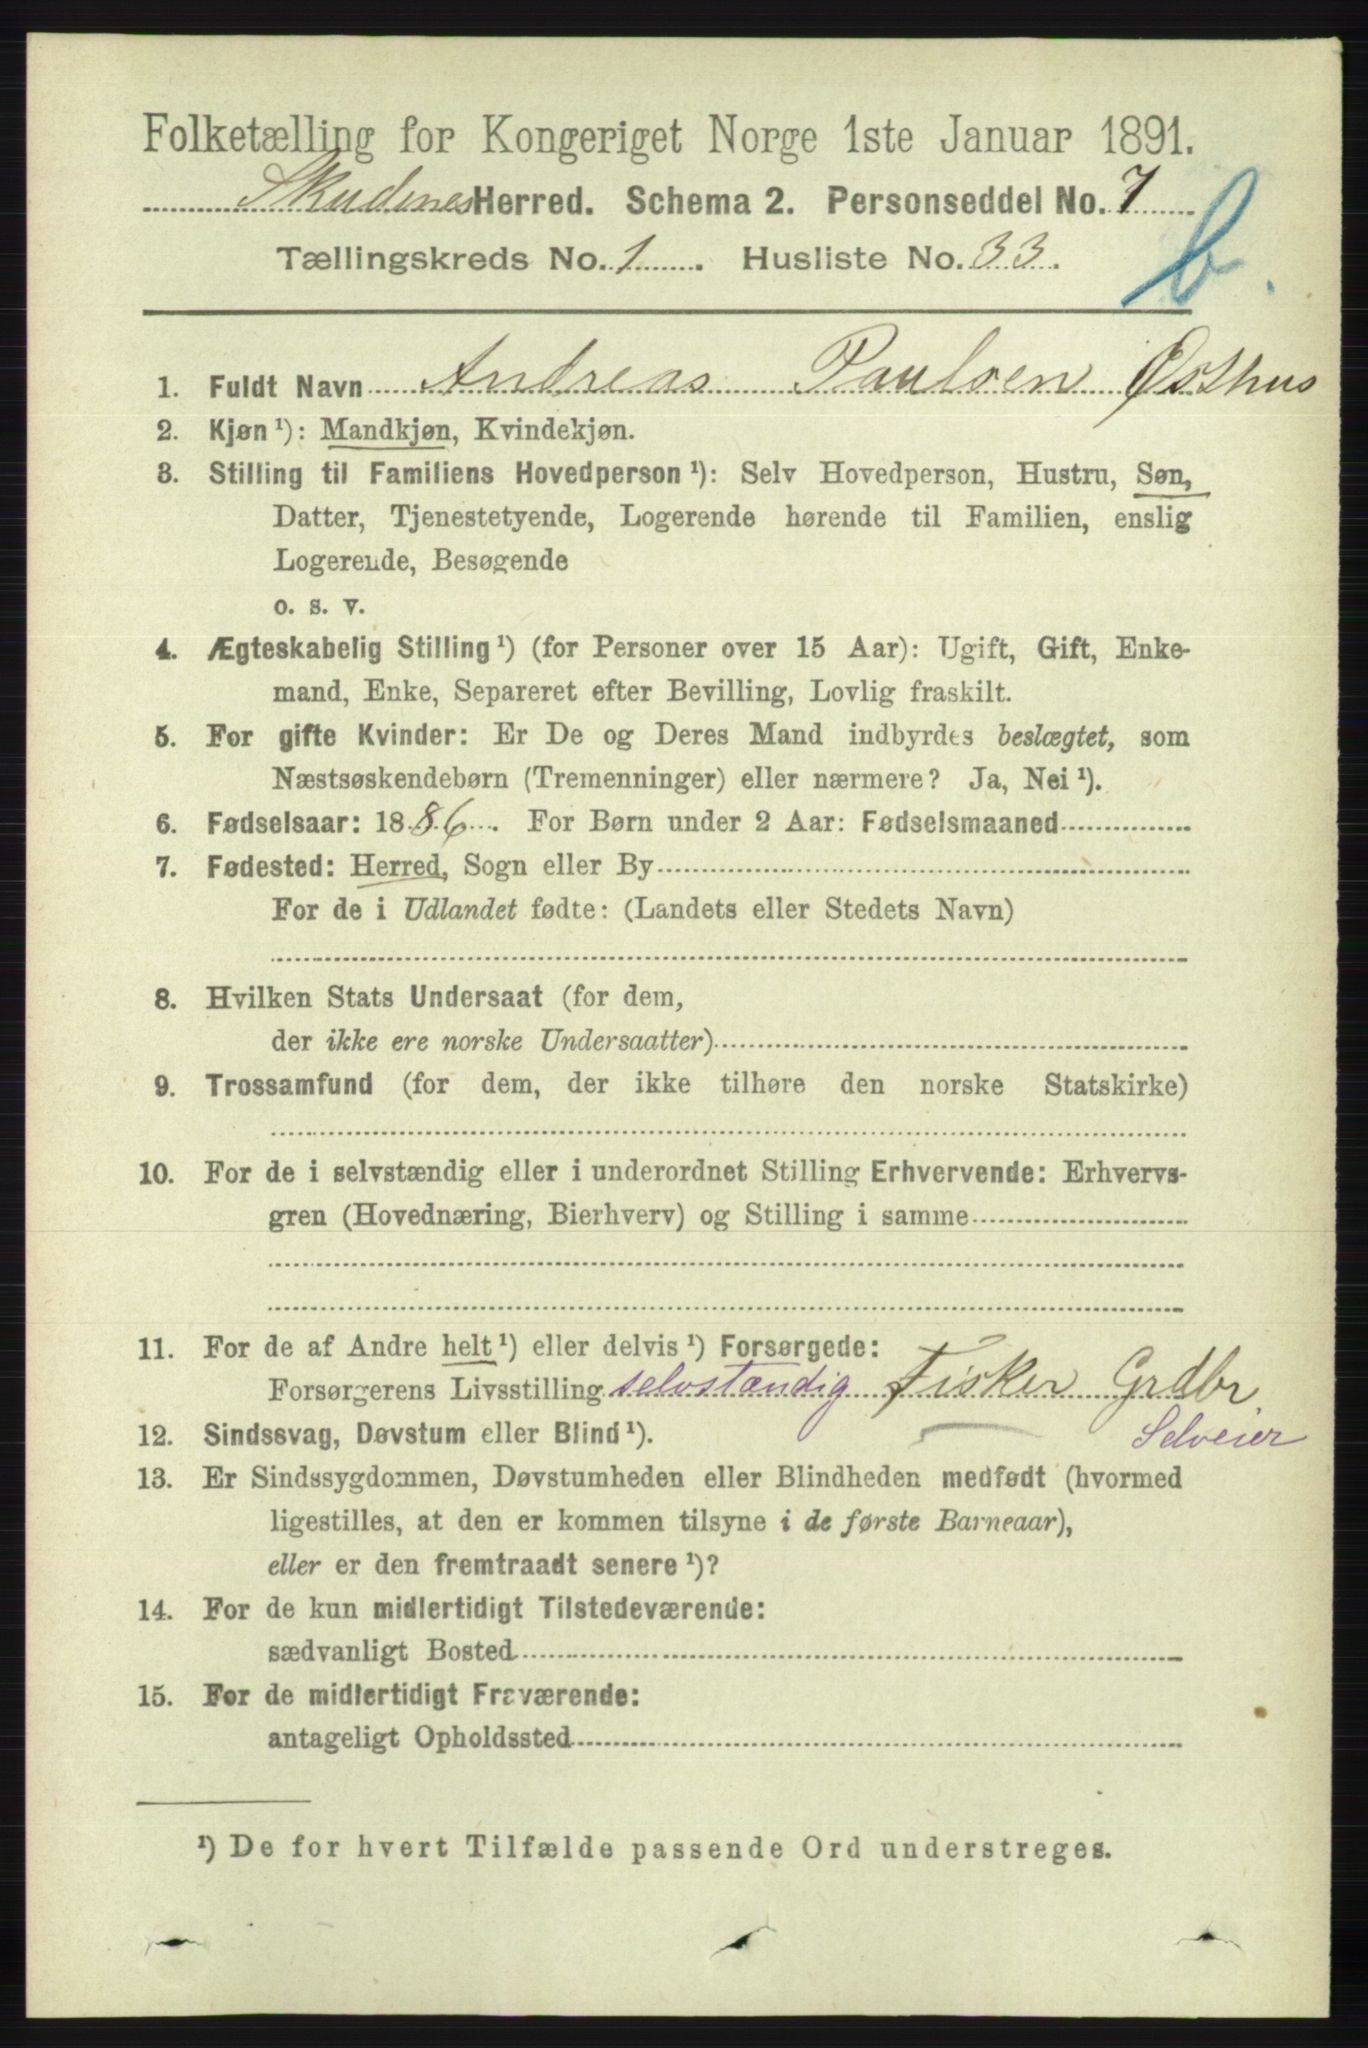 Folketælling for Kongeriget Norge 1ste Januar 1891.
Skudenes Herred. Schema 2. Personseddel No. 7
Tællingskreds No. 1. Husliste No. 33.
b.
1. Fuldt Navn Andreas Paulsen Østhus
2. Kjøn ¹): Mandkjøn, Kvindekjøn.
3. Stilling til Familiens Hovedperson ¹): Selv Hovedperson, Hustru, Søn,
Datter, Tjenestetyende, Logerende hørende til Familien, enslig
Logerende, Besøgende
o. s. v.
4. Ægteskabelig Stilling ¹) (for Personer over 15 Aar): Ugift, Gift, Enke-
mand, Enke, Separeret efter Bevilling, Lovlig fraskilt.
5. For gifte Kvinder: Er De og Deres Mand indbyrdes beslægtet, som
Næstsøskendebørn (Tremenninger) eller nærmere? Ja, Nei ¹).
6. Fødselsaar: 1886. For Børn under 2 Aar: Fødselsmaaned
7. Fødested: Herred, Sogn eller By
For de i Udlandet fødte: (Landets eller Stedets Navn)
8. Hvilken Stats Undersaat (for dem,
der ikke ere norske Undersaatter)
9. Trossamfund (for dem, der ikke tilhøre den norske Statskirke)
10. For de i selvstændig eller i underordnet Stilling Erhvervende: Erhvervs-
gren (Hovednæring, Bierhverv) og Stilling i samme
11. For de af Andre helt ¹) eller delvis ¹) Forsørgede:
Forsørgerens Livsstilling selvstændig Fisker Grdbr
Selveier
12. Sindssvag, Døvstum eller Blind ¹).
13. Er Sindssygdommen, Døvstumheden eller Blindheden medfødt (hvormed
ligestilles, at den er kommen tilsyne i de første Barneaar),
eller er den fremtraadt senere ¹)?
14. For de kun midlertidigt Tilstedeværende:
sædvanligt Bosted
15. For de midlertidigt Fraværende:
antageligt Opholdssted
¹) De for hvert Tilfælde passende Ord understreges.